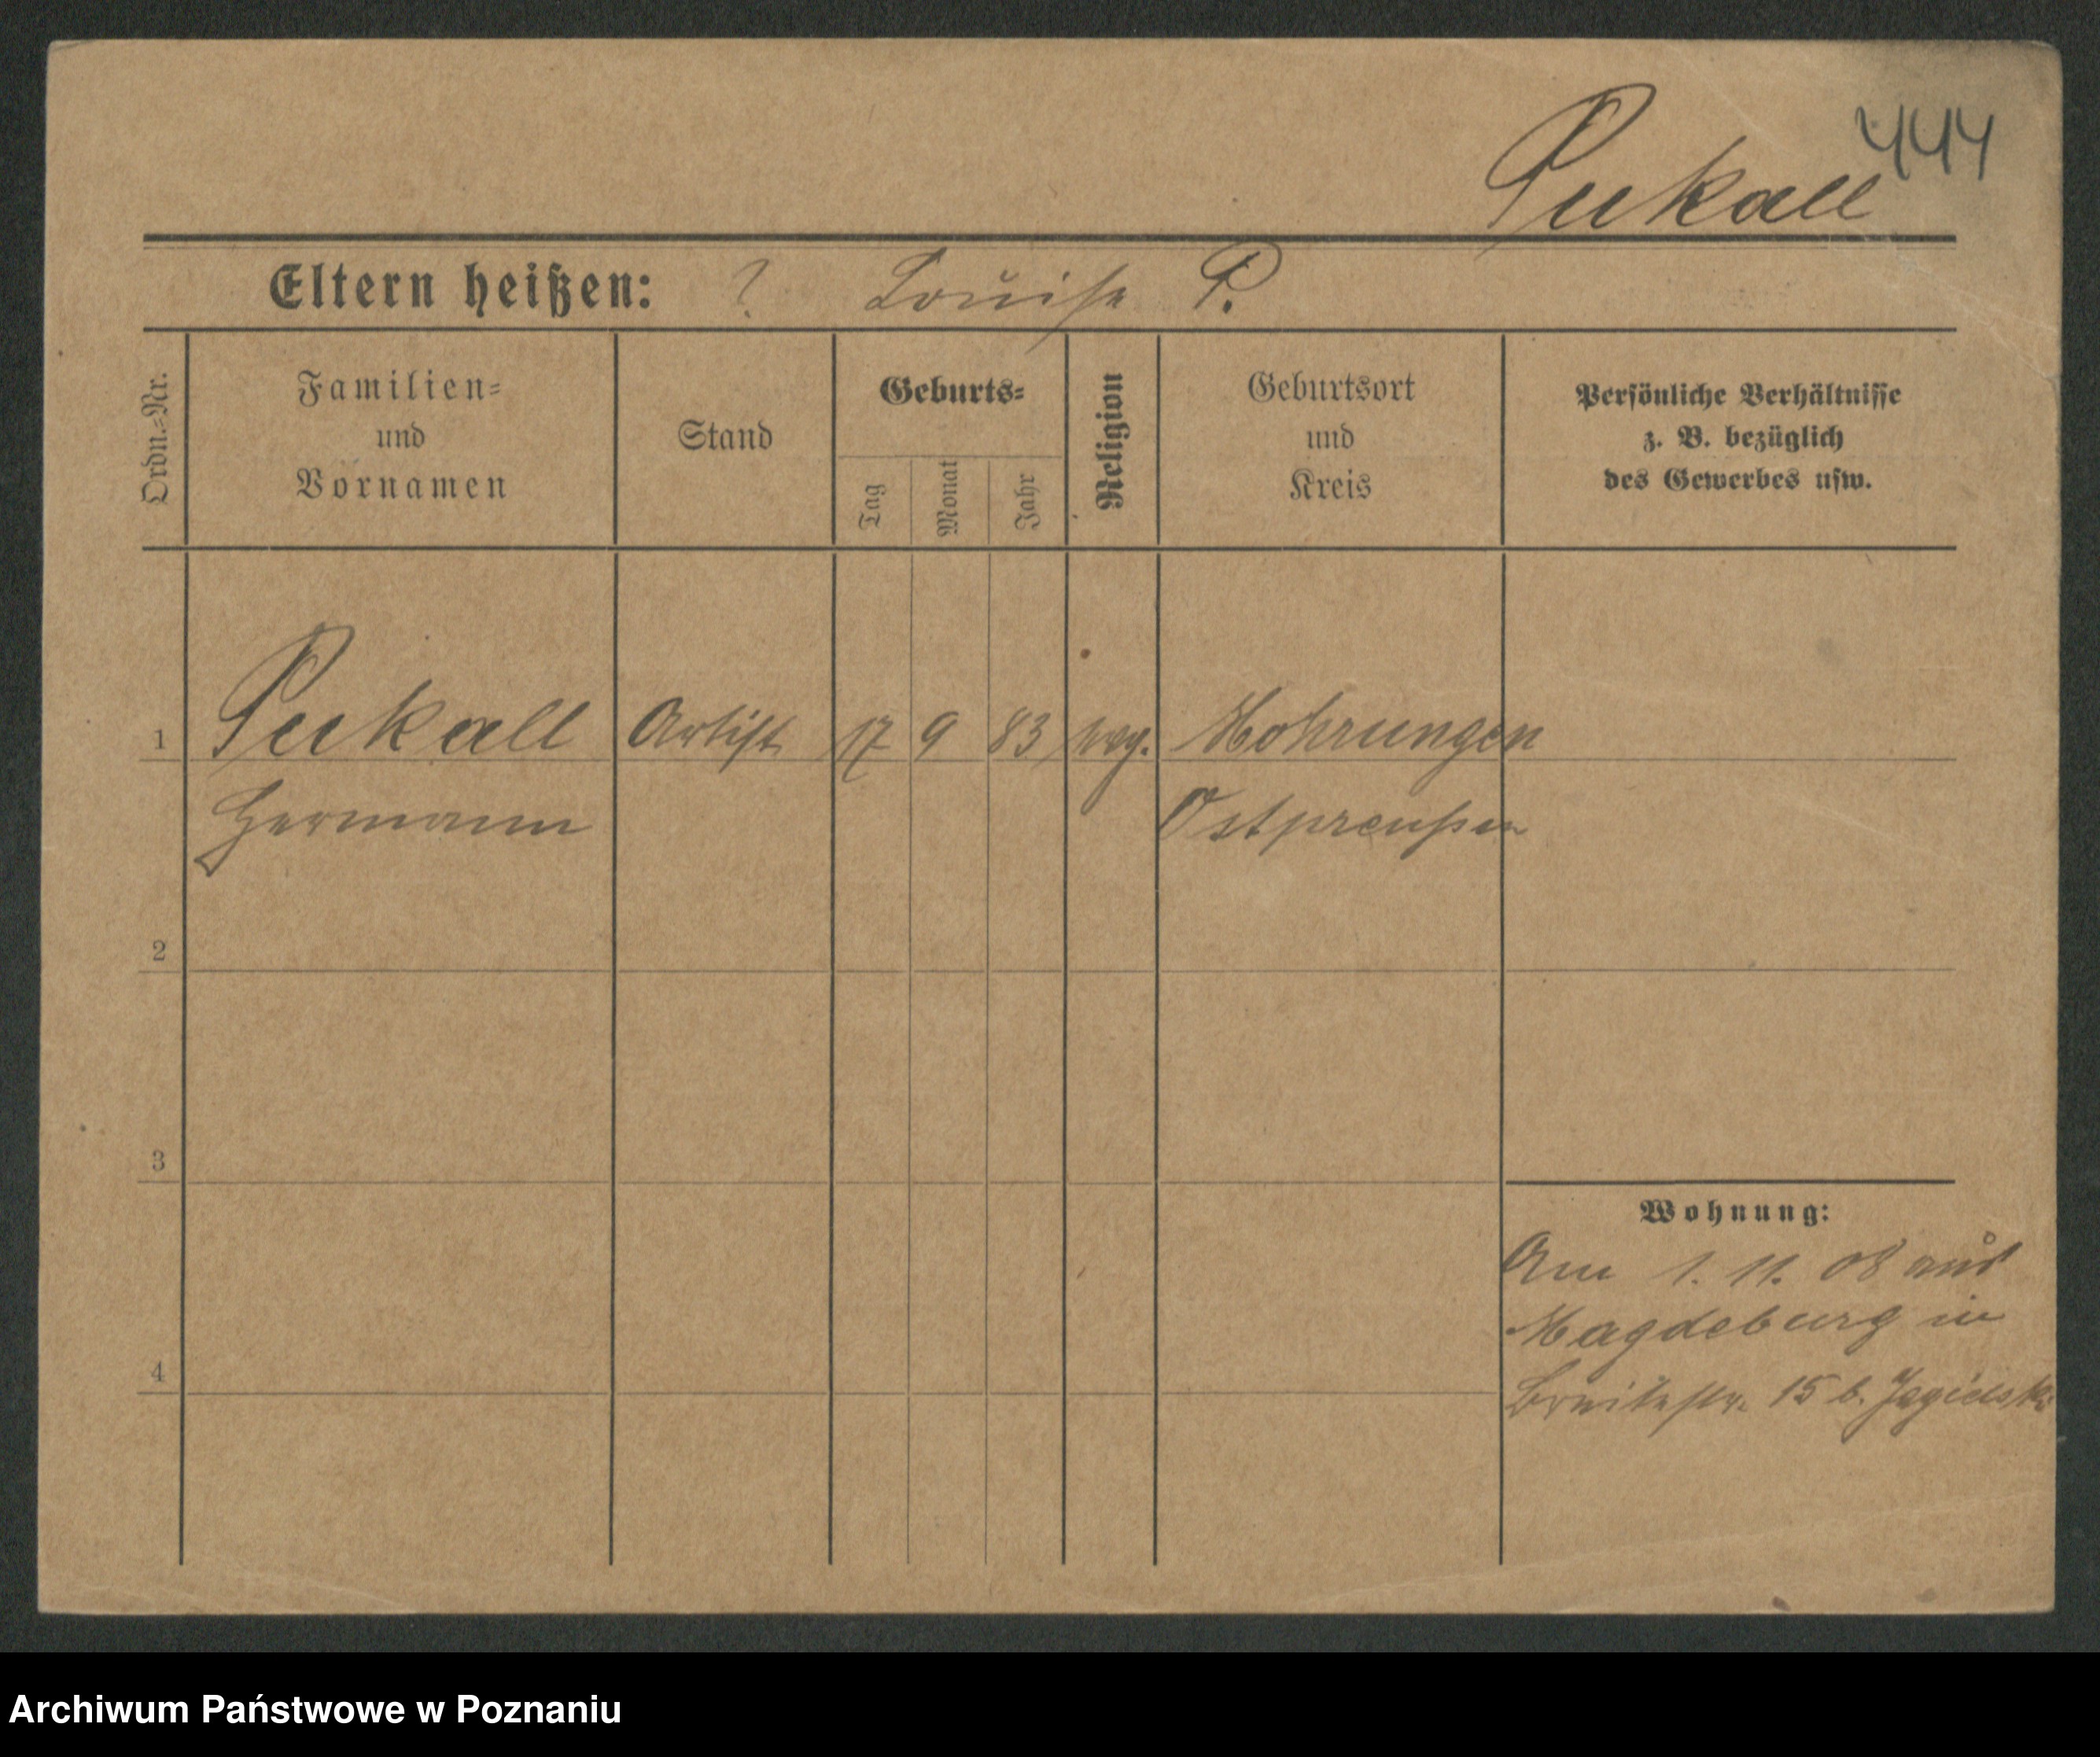 444
Pukall
Eltern heißen: ? Louise P.
Ordn.-Nr.
Familien-
und
Vornamen
Stand
Geburts-
Tag
Monat
Jahr
Religion
Geburtsort
und
Kreis
Persönliche Verhältnisse
z. B. bezüglich
des Gewerbes usw.
1 Pukall Artist 17 9 83 evg. Mohrungen
Hermann Ostpreußen
2
3
Wohnung:
Am 1. 11. 08 aus
Magdeburg in
4
Breitestr. 15 b. Jagielski
Archiwum Państwowe w Poznaniu